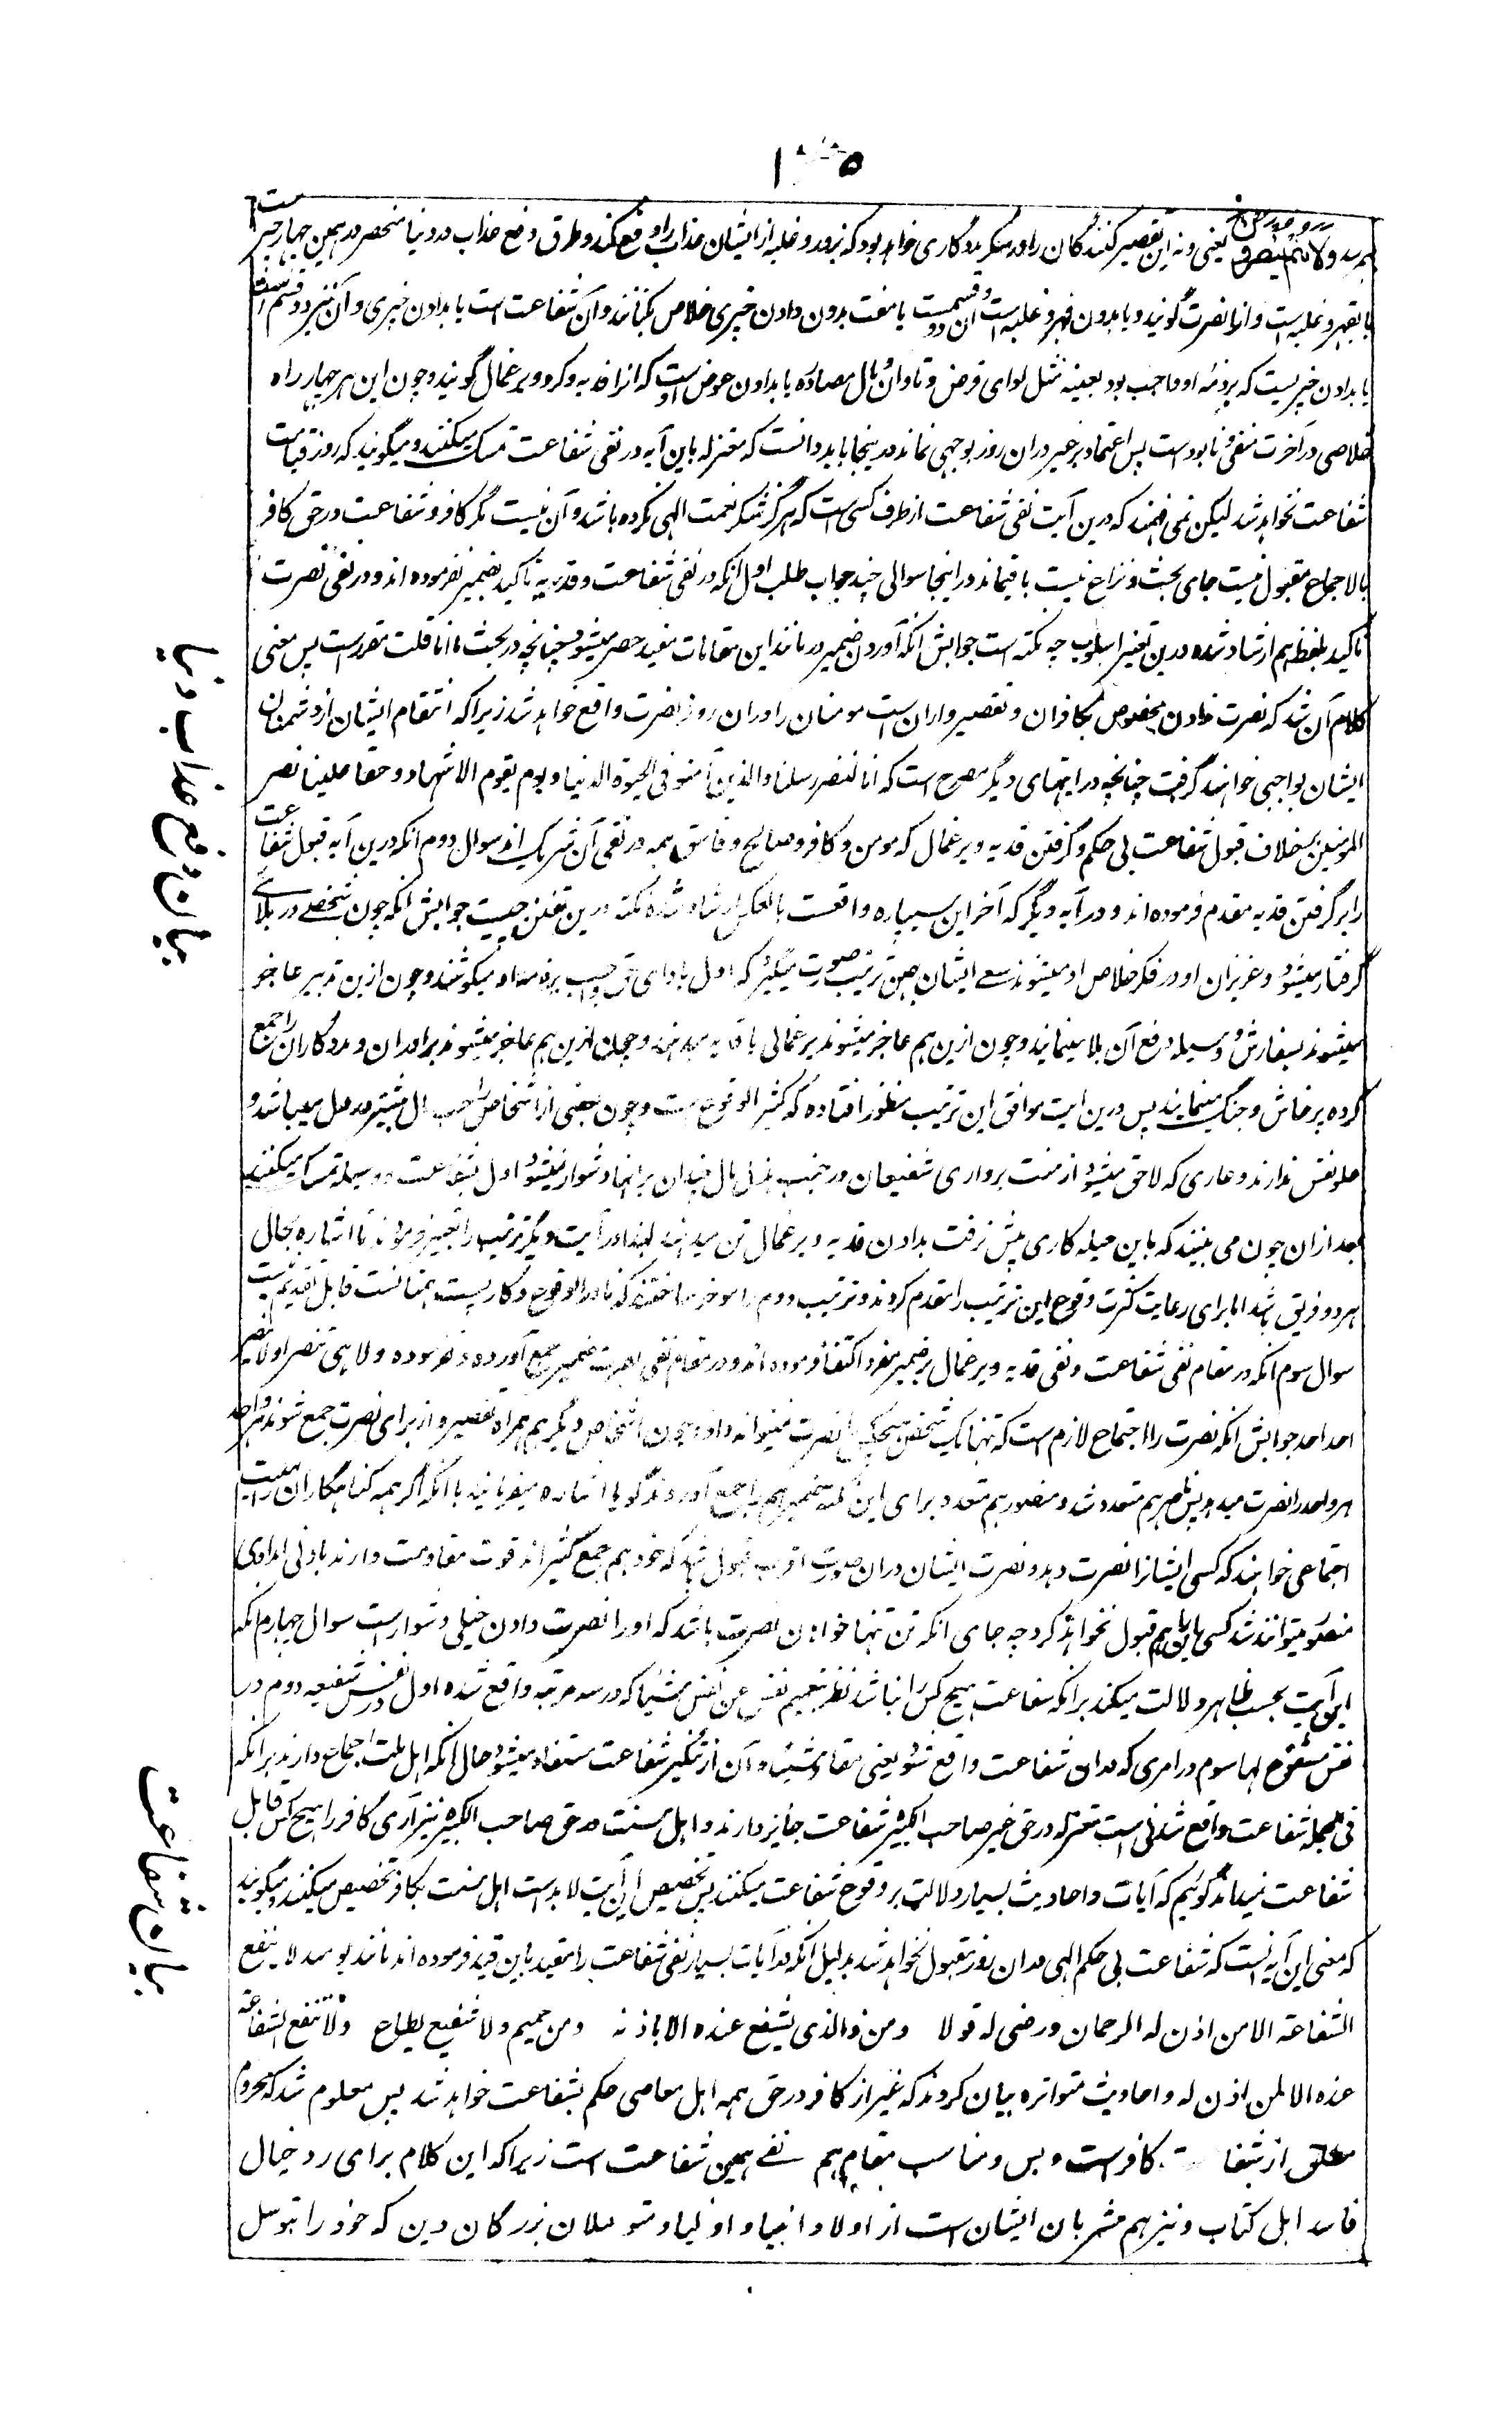 برسد ولا هم ینصرون یعنی ونه این تقصیر کنندگان را مددگاری خواهد بود که بزور و غلبه از ایشان عذاب را دفع کند و طرق دفع عذاب در دنیا منحصر در همین چهار چیز است
یا بقهر و غلبه است و آنرا نصرت گویند و یا بدون قهر و غلبه است و آن دو قسمست یا مفت بدون دادن چیزی خلاص کنانند و آن شفاعت است یا بدادن چیزی و آن نیز دو قسم است
یا بدادن چیزیست که بر ذمه او واجب بود بعینه مثل ادای قرض و تاوان و مال مصادره یا بدادن عوض اوست که آنرا فدیه و گرو و یرغمال گویند و چون این هر چهار راه
خلاصی در آخرت منفی و نابود است پس اعتماد بر غیر در آن روز بوجهی نماند در اینجا باید دانست که معتزله باین آیه در نفی شفاعت تمسک میکنند و میگویند که روز قیامت
شفاعت نخواهد شد لیکن نمی فهمند که درین آیت نفی شفاعت از طرف کسی است که هرگز شکر نعمت الهی نکرده باشد و آن نیست مگر کافر و شفاعت در حق کافر
بالاجماع مقبول نیست جای بحث و نزاع نیست باقیماند در اینجا سوالی چند جواب طلب اول آنکه در نفی شفاعت و فدیه تاکید بضمیر نفرموده اند و در نفی نصرت
تاکید بلفظ هم ارشاد شده درین تغیر اسلوب چه نکته است جوابش آنکه آوردن ضمیر در مانند این مقامات مفید حصر میشود چنانچه در بحث ما انا قلت مقررست پس معنی
کلام آن شد که نصرت ندادن مخصوص بکافران و تقصیرواران است مومنان را در آن روز نصرت واقع خواهد شد زیرا که انتقام ایشان از دشمنان
ایشان بواجبی خواهند گرفت چنانچه در آیتهای دیگر مصرح است که انا لننصر رسلنا والذین آمنوا فی الحیوة الدنیا ویوم یقوم الاشهاد وحقا علینا نصر
المومنین بخلاف قبول شفاعت بی حکم و گرفتن فدیه و یرغمال که مومن و کافر و صالح و فاسق همه در نفی آن شریک اند سوال دوم آنکه درین آیه قبول شفاعت
را بر گرفتن فدیه مقدم فرموده اند و در آیه دیگر که آخر این سیپاره واقعست بالعکس ارشاد شده نکته درین تفنن چیست جوابش آنکه چون شخصی در بلائے
گرفتار میشود و عزیزان او در فکر خلاص او میشوند سعے ایشان بهمین ترتیب صورت میگیرد که اول بادای حق واجب بر ذمه او میکوشند و چون ازین تدبیر عاجز
میشوند بسفارش و وسیله دفع آن بلا مینمایند و چون ازین هم عاجز میشوند یرغمالی یا فدیه میدهند و چون ازین هم عاجز میشوند برادران و مددگاران را جمع
کرده پرخاش و جنگ مینمایند پس درین آیت موافق این ترتیب منظور افتاده که کثیر الوقوع ست و چون بعضی از اشخاص را حب مال بیشتر در دل میباشد و
علو نفس ندارند و عاری که لاحق میشود از منت برداری شفیعان در جنب بذل مال چندان بر آنها دشوار نمیشود اول بشفاعت و وسیله تمسک میکنند
بعد ازان چون می بینند که باین حیله کاری پیش نرفت بدادن فدیه و یرغمال تن میدهند لهذا در آیت دیگر ترتیب را تغییر فرمودند تا اشاره بحال
هر دو فریق باشد اما برای رعایت کثرت وقوع این ترتیب را مقدم کردند و ترتیب دوم را موخر ساختند که نادر الوقوع و
سوال سوم آنکه در مقام نفی شفاعت و نفی فدیه و یرغمال بر ضمیر مفرد اکتفا فرموده اند و در مقام نفی نصرت ضمیر جمع آورده و نفرموده ولا هی تنصر او لا ینصر
احد احد جوابش آنکه نصرت را اجتماع لازم است که تنها یک شخص هیچکس را نصرت نمیتواند داد و چون اشخاص دیگر هم همراه تقصیروار برای نصرت جمع شوند هر واحد
هر واحد را نصرت میدهد پس ناصر هم متعدد شد و منصور هم متعدد برای این نکته ضمیر هم را جمع آوردند گویا اشاره میفرمایند بآنکه اگر همه گناهگاران بهیئت
اجتماعی خواهند که کسی ایشانرا نصرت دهد و نصرت ایشان دران صورت اقرب بقبول باشد که خود هم جمع کثیر اند قوت مقاومت دارند بادنی امدادی
منصور میتوانند شد کسی این را هم قبول نخواهد کرد چه جای آنکه تن تنها خواهان نصرت باشد که او را نصرت دادن خیلی دشوار است سوال چهارم آنکه
این آیت بحسب ظاهر دلالت میکند بر آنکه شفاعت هیچ کس را نباشد نظر بتعمیم نفس عن نفس شیئا که در سه مرتبه واقع شده اول در نفس شفیعه دوم در
نفس مشفوع لها سوم در امری که دران شفاعت واقع شود یعنی مفاد شیئا و آن از تنکیر شفاعت مستفاد میشود حال آنکه اهل ملت اجماع دارند بر آنکه
فی الجمله شفاعت واقع شدنی است معتزله در حق غیر صاحب الکبیره شفاعت جایز دارند و اهل سنت در حق صاحب الکبیره نیز آری کافر را هیچ کس قابل
شفاعت نمیداند گوئیم که آیات و احادیث بسیار دلالت بر وقوع شفاعت میکنند پس تخصیص این آیت لابد است اهل سنت بکافر تخصیص میکنند و میگویند
که معنی این آیه اینست که شفاعت بی حکم الهی دران روز مقبول نخواهد شد بدلیل آنکه در آیات بسیار نفی شفاعت را مقید باین قید فرموده اند مانند یومئذ لا ینفع
الشفاعة الا من اذن له الرحمان ورضی له قولا ومن ذا الذی یشفع عنده الا باذنه ومن حمیم ولا شفیع یطاع ولا تنفع الشفاعة
عنده الا لمن اذن له و احادیث متواتره بیان کردند که غیر از کافر در حق همه اهل معاصی حکم بشفاعت خواهد شد پس معلوم شد که محروم
مطلق از شفاعت کافر است و بس و مناسب مقام هم نفے همین شفاعت است زیرا که این کلام برای رد خیال
فاسد اهل کتاب و نیز هم مشربان ایشان است از اولاد انبیا و اولیا و متوسلان بزرگان دین که خود را بتوسل
بیان دفع عذاب دنیا
بیان شفاعت